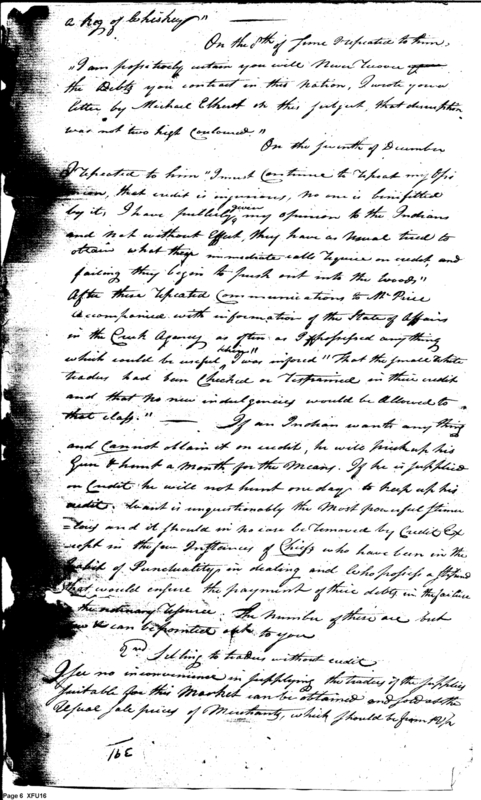 a keg of Whiskey" —
On the 8th of June I repeated to him,
"I am possitively certain you will never recover
the debts you contract in this Nation, I wrote you a
letter by Michael Elhert on this subject, that description
was not two high couloured"
On the seventh of December
I repeated to him "I must continue to repeat my Opi
nion, that credit is injurious, no one is benifitted
by it, I have publickly given my opinion to the Indians
and not without Effect, they have as usual tried to
obtain what their immediate calls require on credit, and
failing they begin to push out into the woods"
After these repeated communications to Mr Price
accompanied with information of the State of Affairs
in the Creek Agency as often as I possessed any thing
which could be useful I was infored "That the small white
traders had been Checked or restrained in their credit
and that no new indulgencies would be allowed to
that class." — If an Indian wants any thing
and cannot obtain it on credit, he will pick up his
Gun & hunt a month for the Means. If he is supplied
on Credit he will not hunt one day to keep up his
credit. Want is unquestionably the Most powerful stimu
=lous and it should in no case be removed by Credit Ex
cept in the few Instances of Chiefs who have been in the
habit of Punctuality in dealing and who possess a stipend
that would ensure the payment of their debts in the failure
the ordinary resource. The number of these are but
few & can be pointed out to you
2nd Selling to traders without credit
I see no inconvenience in supplying the traders if the supplies
suitable for this Market can be obtained and sold at the
usual sale prices of Merchants, which should be from
163
Page 6 XFU16